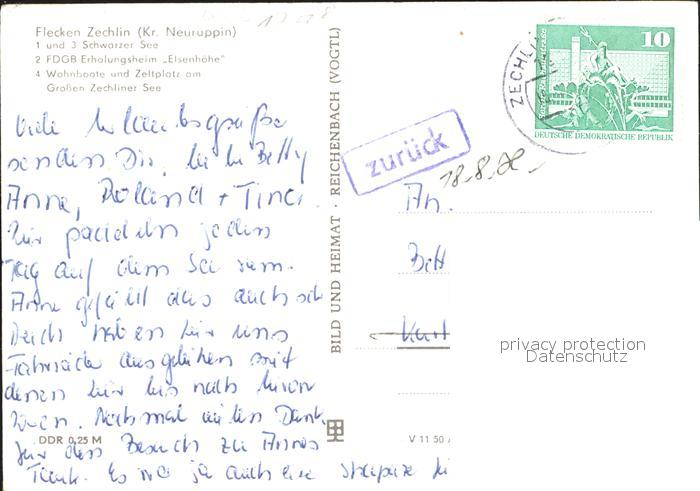 Flecken Zechlin (Kr. Neuruppin)
1 und 3 Schwarzer See
2 FDGB Erholungsheim „Elsenhöhe"
4 Wohnboote und Zeltplatz am
Großen Zechliner See
Viele Urlaubsgrüße
senden Dir, liebe Betty
Anne, Roland + Tina.
Wir paddeln jeden
Tag auf dem See rum.
Anne gefällt das auch sehr
haben wir uns
Fahrräder ausgeliehen mit
denen wir bis nach
Nochmal vielen Dank
für den Besuch zu Annes
Es war ja auch eine
DDR 0,25 M
BILD UND HEIMAT · REICHENBACH (VOGTL)
V 11 50
zurück
18.8.
ZECHLI
10
DEUTSCHE DEMOKRATISCHE REPUBLIK
An
Bett
Kurt
privacy protection
Datenschutz